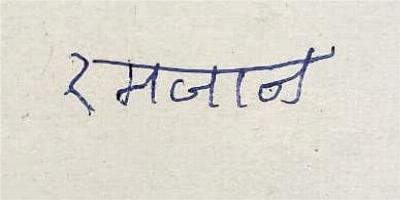 रमजान